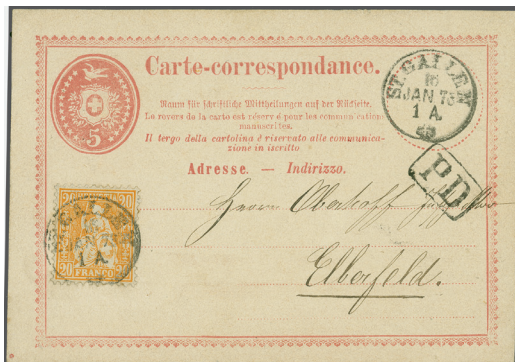 Carte-correspondance.
5
Raum für schriftliche Mittheilungen auf der Rückseite.
Le revers de la carte est réservé pour les communications
manuscrites.
Il tergo della cartolina è riservato alle communica-
zione in iscritto
Adresse. — Indirizzo.
ST. GALLEN
JAN 73
1 A.
PD
Herrn Oberhoff
Elberfeld.
ST. GALLEN
1 A
20
20
FRANCO